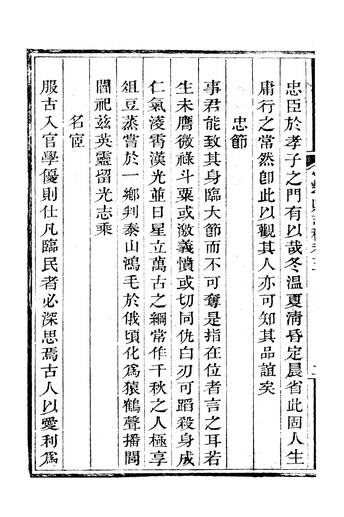 忠臣於孝子之門有以哉冬溫夏凊昏定晨省此固人生
庸行之常然卽此以觀其人亦可知其品誼矣
忠節
事君能致其身臨大節而不可奪是指在位者言之耳若
生未膺微祿斗粟或激義憤或切同仇白刃可蹈殺身成
仁氣淩霄漢光並日星立萬古之綱常作千秋之人極享
俎豆蒸嘗於一鄉判泰山鴻毛於俄頃化爲猿鶴聲播閭
閻祀兹英靈留光志乘
名宦
服古入官學優則仕凡臨民者必深思焉古人以愛利爲